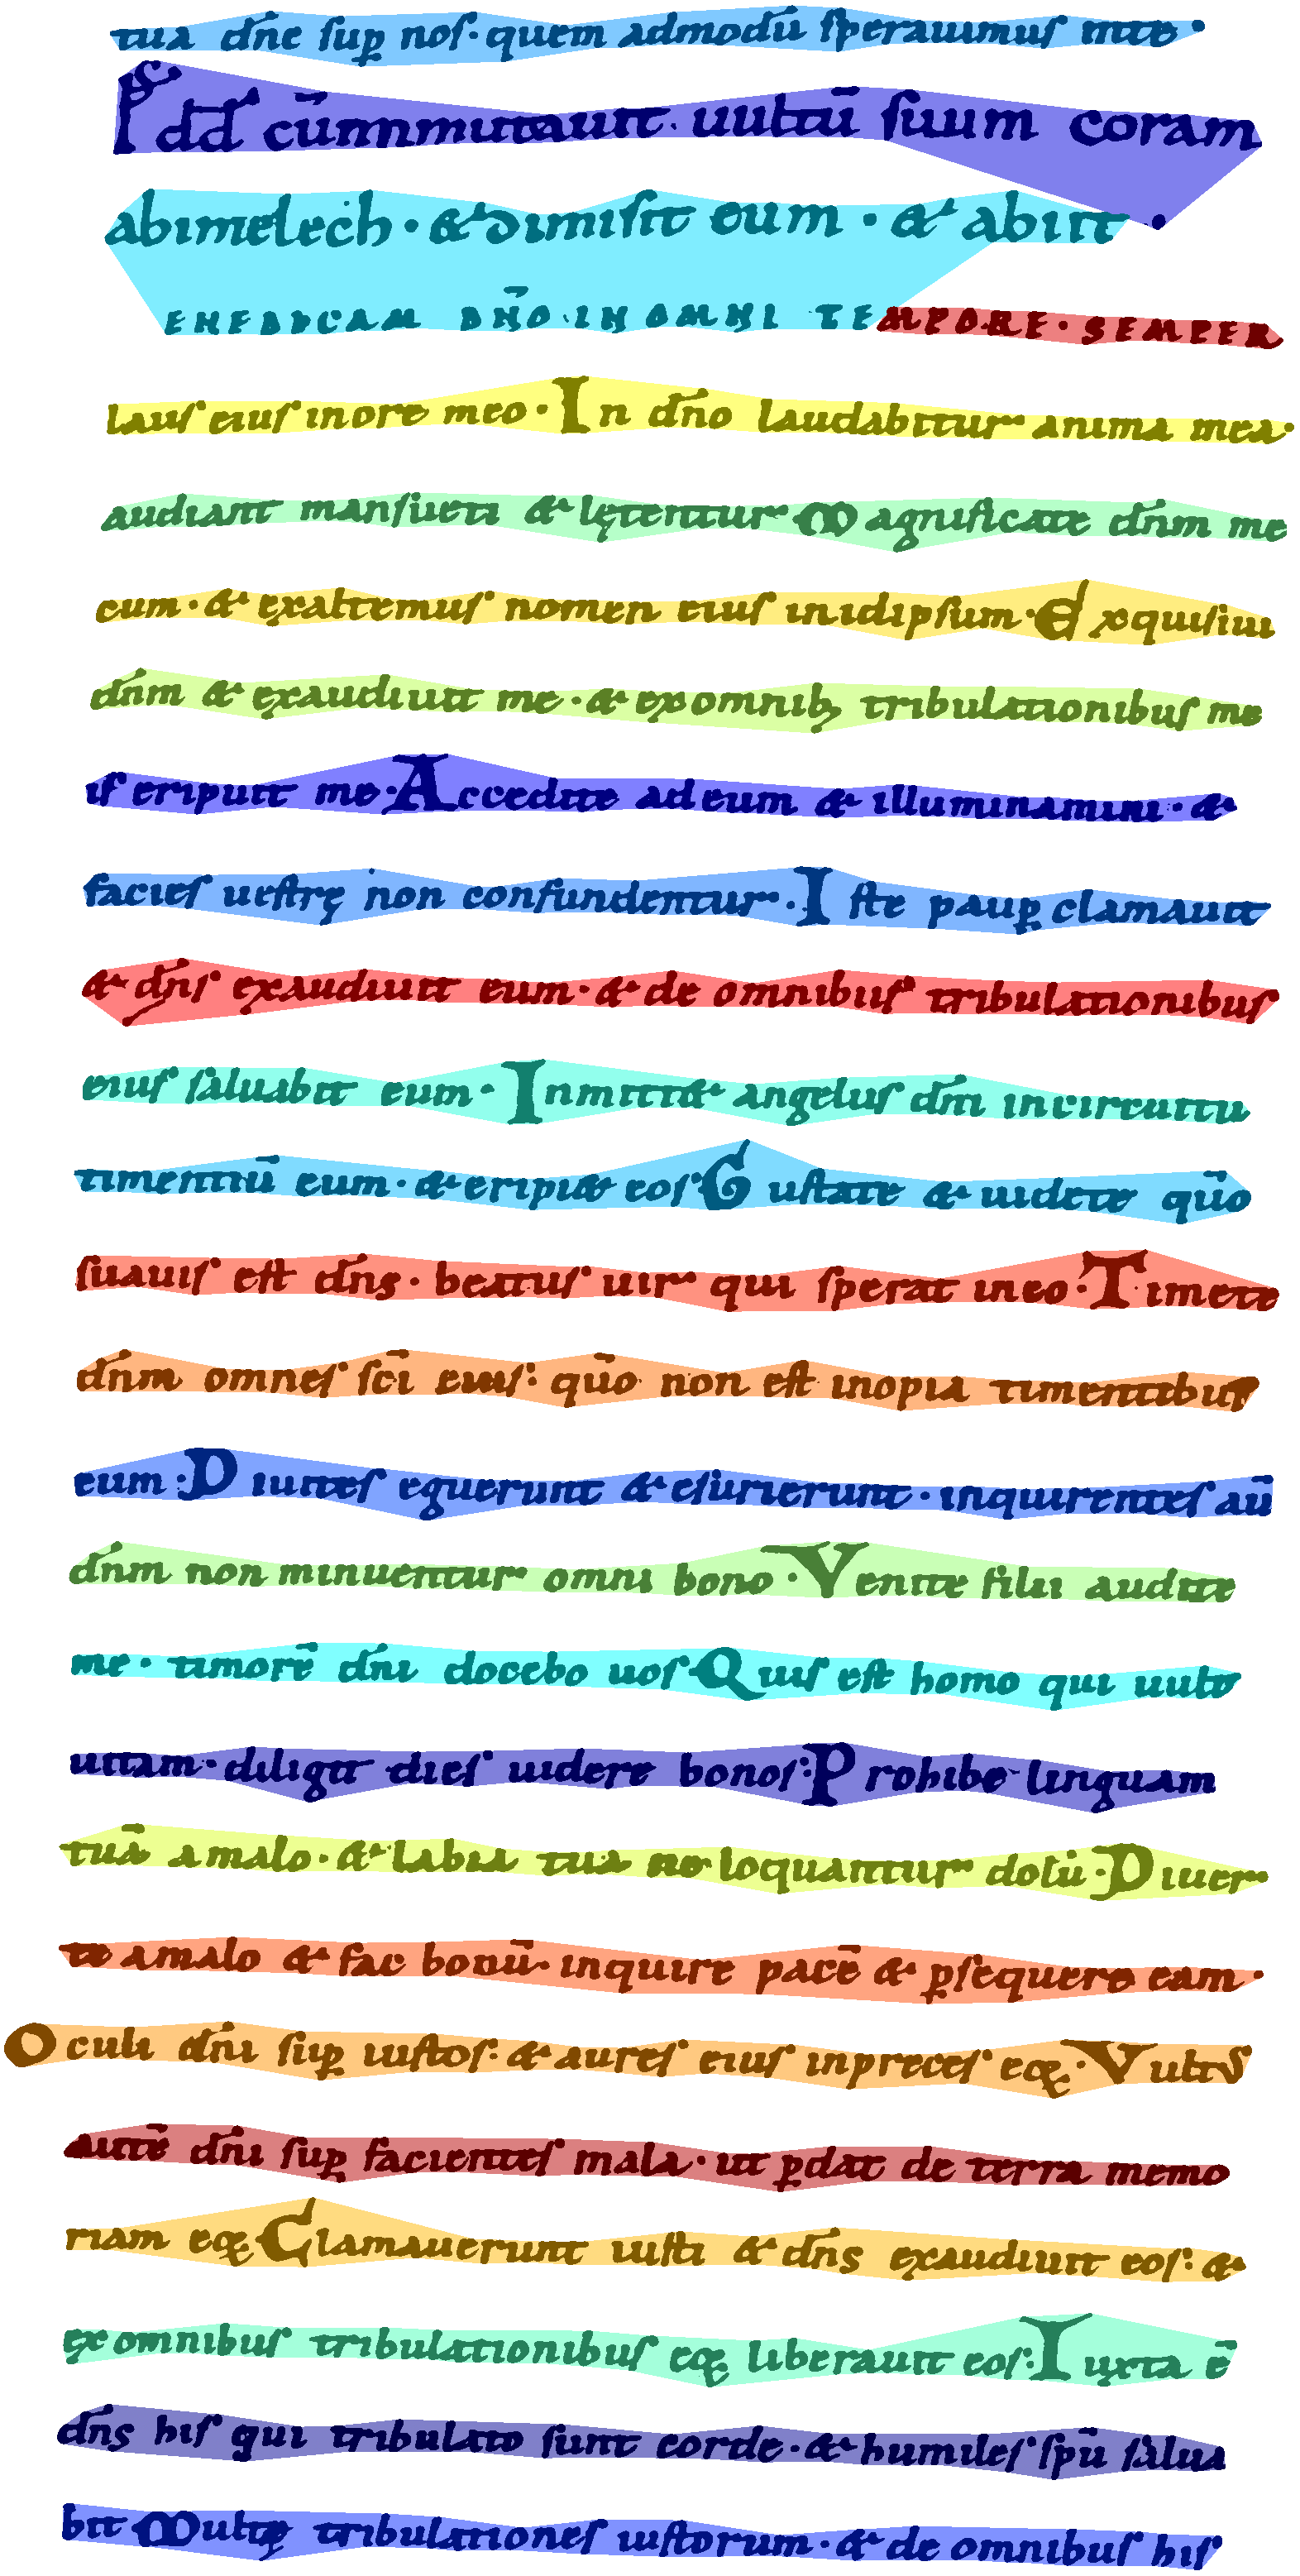 tua dn̄e sup̱ nos· quem admodū sperauimus inte·
Ps dd̄ cū inmutauit uultū suum coram
abimelech· & dimisit eum· & abiit·
ENEDICAM DN̄O· IN OMNI TEMPORE· SEMPER
laus eius inore meo· In dn̄o laudabitur anima mea·
audiant mansueti & lętentur Magnificate dn̄m me
cum· & exaltemus nomen eius inidipsum· Exquisiui
dn̄m & exaudiuit me· & exomnib; tribulationibus me
is eripuit me· Accedite adeum & illuminamini· &
facies uestrę non confundentur· Iste paup̱ clamauit
& dn̄s exaudiuit eum· & de omnibus tribulationibus
eius saluabit eum· Inmitt& angelus dn̄i incircuitu
timentiū eum· & eripi& eos· Gustate & uidete qūo
suauis est dn̄s· beatus uir qui sperat ineo· Timete
dn̄m omnes sc̄i eius· qūo non est inopia timentibus
eum· Diuites eguerunt & esurierunt· inquirentes aū
dn̄m non minuentur omni bono· Venite filii audite
me· timorē dn̄i docebo uos· Quis est homo qui uult
uitam· diligit dies uidere bonos· Prohibe linguam
tuā amalo· & labia tua ne loquantur dolū· Diuer
te amalo & fac bonū· inquire pacē & p̱sequere eam·
Oculi dn̄i sup̱ iustos· & aures eius inpreces eoꝝ· Vultus
autē dn̄i sup̱ facientes mala· ut p̱dat de terra memo
riam eoꝝ Clamauerunt iusti & dn̄s exaudiuit eos· &
exomnibus tribulationibus eoꝝ liberauit eos· Iuxta ē
dn̄s his qui tribulato sunt corde· & humiles sp̄u salua
bit Multę tribulationes iustorum· & de omnibus his